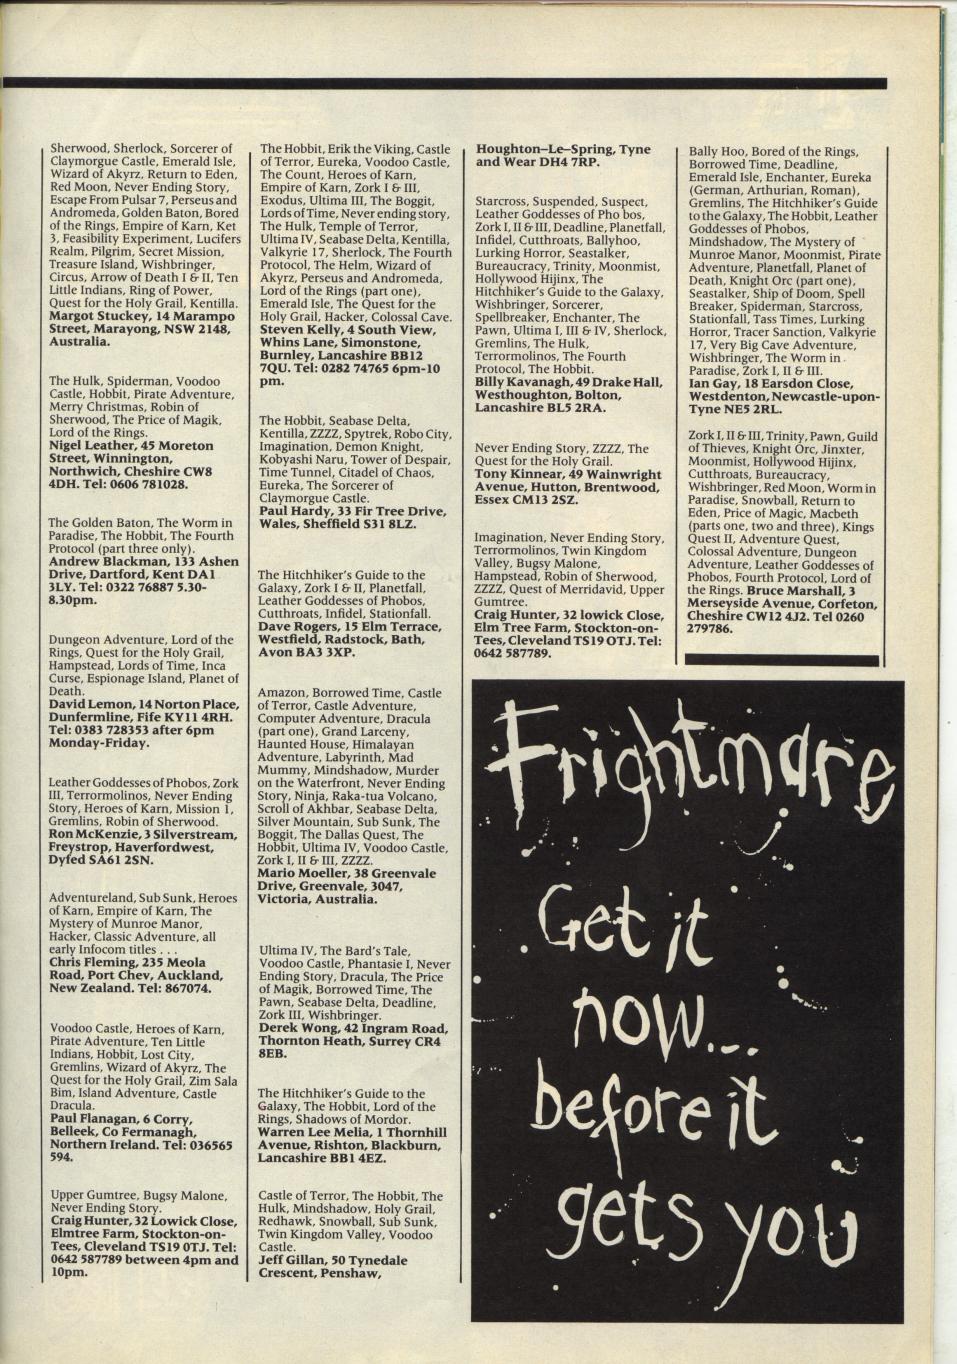 Sherwood, Sherlock, Sorcerer of
Claymorgue Castle, Emerald Isle,
Wizard of Akyrz, Return to Eden,
Red Moon, Never Ending Story,
Escape From Pulsar 7, Perseus and
Andromeda, Golden Baton, Bored
of the Rings, Empire of Karn, Ket
3, Feasibility Experiment, Lucifers
Realm, Pilgrim, Secret Mission,
Treasure Island, Wishbringer,
Circus, Arrow of Death I & II, Ten
Little Indians, Ring of Power,
Quest for the Holy Grail, Kentilla.
Margot Stuckey, 14 Marampo
Street, Marayong, NSW 2148,
Australia.
The Hulk, Spiderman, Voodoo
Castle, Hobbit, Pirate Adventure,
Merry Christmas, Robin of
Sherwood, The Price of Magik,
Lord of the Rings.
Nigel Leather, 45 Moreton
Street, Winnington,
Northwich, Cheshire CW8
4DH. Tel: 0606 781028.
The Golden Baton, The Worm in
Paradise, The Hobbit, The Fourth
Protocol (part three only).
Andrew Blackman, 133 Ashen
Drive, Dartford, Kent DA1
3LY. Tel: 0322 76887 5.30-
8.30pm.
Dungeon Adventure, Lord of the
Rings, Quest for the Holy Grail,
Hampstead, Lords of Time, Inca
Curse, Espionage Island, Planet of
Death.
David Lemon, 14 Norton Place,
Dunfermline, Fife KY11 4RH.
Tel: 0383 728353 after 6pm
Monday-Friday.
Leather Goddesses of Phobos, Zork
III, Terrormolinos, Never Ending
Story, Heroes of Karn, Mission 1,
Gremlins, Robin of Sherwood.
Ron McKenzie, 3 Silverstream,
Freystrop, Haverfordwest,
Dyfed SA61 2SN.
Adventureland, Sub Sunk, Heroes
of Karn, Empire of Karn, The
Mystery of Munroe Manor,
Hacker, Classic Adventure, all
early Infocom titles . . .
Chris Fleming, 235 Meola
Road, Port Chev, Auckland,
New Zealand. Tel: 867074.
Voodoo Castle, Heroes of Karn,
Pirate Adventure, Ten Little
Indians, Hobbit, Lost City,
Gremlins, Wizard of Akyrz, The
Quest for the Holy Grail, Zim Sala
Bim, Island Adventure, Castle
Dracula.
Paul Flanagan, 6 Corry,
Belleek, Co Fermanagh,
Northern Ireland. Tel: 036565
594.
Upper Gumtree, Bugsy Malone,
Never Ending Story.
Craig Hunter, 32 Lowick Close,
Elmtree Farm, Stockton-on-
Tees, Cleveland TS19 0TJ. Tel:
0642 587789 between 4pm and
10pm.
The Hobbit, Erik the Viking, Castle
of Terror, Eureka, Voodoo Castle,
The Count, Heroes of Karn,
Empire of Karn, Zork I & III,
Exodus, Ultima III, The Boggit,
Lords of Time, Never ending story,
The Hulk, Temple of Terror,
Ultima IV, Seabase Delta, Kentilla,
Valkyrie 17, Sherlock, The Fourth
Protocol, The Helm, Wizard of
Akyrz, Perseus and Andromeda,
Lord of the Rings (part one),
Emerald Isle, The Quest for the
Holy Grail, Hacker, Colossal Cave.
Steven Kelly, 4 South View,
Whins Lane, Simonstone,
Burnley, Lancashire BB12
7QU. Tel: 0282 74765 6pm-10
pm.
The Hobbit, Seabase Delta,
Kentilla, ZZZZ, Spytrek, Robo City,
Imagination, Demon Knight,
Kobyashi Naru, Tower of Despair,
Time Tunnel, Citadel of Chaos,
Eureka, The Sorcerer of
Claymorgue Castle.
Paul Hardy, 33 Fir Tree Drive,
Wales, Sheffield S31 8LZ.
The Hitchhiker's Guide to the
Galaxy, Zork I & II, Planetfall,
Leather Goddesses of Phobos,
Cutthroats, Infidel, Stationfall.
Dave Rogers, 15 Elm Terrace,
Westfield, Radstock, Bath,
Avon BA3 3XP.
Amazon, Borrowed Time, Castle
of Terror, Castle Adventure,
Computer Adventure, Dracula
(part one), Grand Larceny,
Haunted House, Himalayan
Adventure, Labyrinth, Mad
Mummy, Mindshadow, Murder
on the Waterfront, Never Ending
Story, Ninja, Raka-tua Volcano,
Scroll of Akhbar, Seabase Delta,
Silver Mountain, Sub Sunk, The
Boggit, The Dallas Quest, The
Hobbit, Ultima IV, Voodoo Castle,
Zork I, II & III, ZZZZ.
Mario Moeller, 38 Greenvale
Drive, Greenvale, 3047,
Victoria, Australia.
Ultima IV, The Bard's Tale,
Voodoo Castle, Phantasie I, Never
Ending Story, Dracula, The Price
of Magik, Borrowed Time, The
Pawn, Seabase Delta, Deadline,
Zork III, Wishbringer.
Derek Wong, 42 Ingram Road,
Thornton Heath, Surrey CR4
8EB.
The Hitchhiker's Guide to the
Galaxy, The Hobbit, Lord of the
Rings, Shadows of Mordor.
Warren Lee Melia, 1 Thornhill
Avenue, Rishton, Blackburn,
Lancashire BB1 4EZ.
Castle of Terror, The Hobbit, The
Hulk, Mindshadow, Holy Grail,
Redhawk, Snowball, Sub Sunk,
Twin Kingdom Valley, Voodoo
Castle.
Jeff Gillan, 50 Tynedale
Crescent, Penshaw,
Houghton–Le–Spring, Tyne
and Wear DH4 7RP.
Starcross, Suspended, Suspect,
Leather Goddesses of Pho bos,
Zork I, II & III, Deadline, Planetfall,
Infidel, Cutthroats, Ballyhoo,
Lurking Horror, Seastalker,
Bureaucracy, Trinity, Moonmist,
Hollywood Hijinx, The
Hitchhiker's Guide to the Galaxy,
Wishbringer, Sorcerer,
Spellbreaker, Enchanter, The
Pawn, Ultima I, III & IV, Sherlock,
Gremlins, The Hulk,
Terrormolinos, The Fourth
Protocol, The Hobbit.
Billy Kavanagh, 49 Drake Hall,
Westhoughton, Bolton,
Lancashire BL5 2RA.
Never Ending Story, ZZZZ, The
Quest for the Holy Grail.
Tony Kinnear, 49 Wainwright
Avenue, Hutton, Brentwood,
Essex CM13 2SZ.
Imagination, Never Ending Story,
Terrormolinos, Twin Kingdom
Valley, Bugsy Malone,
Hampstead, Robin of Sherwood,
ZZZZ, Quest of Merridavid, Upper
Gumtree.
Craig Hunter, 32 lowick Close,
Elm Tree Farm, Stockton-on-
Tees, Cleveland TS19 OTJ. Tel:
0642 587789.
Bally Hoo, Bored of the Rings,
Borrowed Time, Deadline,
Emerald Isle, Enchanter, Eureka
(German, Arthurian, Roman),
Gremlins, The Hitchhiker's Guide
to the Galaxy, The Hobbit, Leather
Goddesses of Phobos,
Mindshadow, The Mystery of
Munroe Manor, Moonmist, Pirate
Adventure, Planetfall, Planet of
Death, Knight Orc (part one),
Seastalker, Ship of Doom, Spell
Breaker, Spiderman, Starcross,
Stationfall, Tass Times, Lurking
Horror, Tracer Sanction, Valkyrie
17, Very Big Cave Adventure,
Wishbringer, The Worm in
Paradise, Zork I, II & III.
Ian Gay, 18 Earsdon Close,
Westdenton, Newcastle-upon-
Tyne NE5 2RL.
Zork I, II & III, Trinity, Pawn, Guild
of Thieves, Knight Orc, Jinxter,
Moonmist, Hollywood Hijinx,
Cutthroats, Bureaucracy,
Wishbringer, Red Moon, Worm in
Paradise, Snowball, Return to
Eden, Price of Magic, Macbeth
(parts one, two and three), Kings
Quest II, Adventure Quest,
Colossal Adventure, Dungeon
Adventure, Leather Goddesses of
Phobos, Fourth Protocol, Lord of
the Rings. Bruce Marshall, 3
Merseyside Avenue, Corfeton,
Cheshire CW12 4J2. Tel 0260
279786.
Frightmare
Get it
now...
before it
gets you